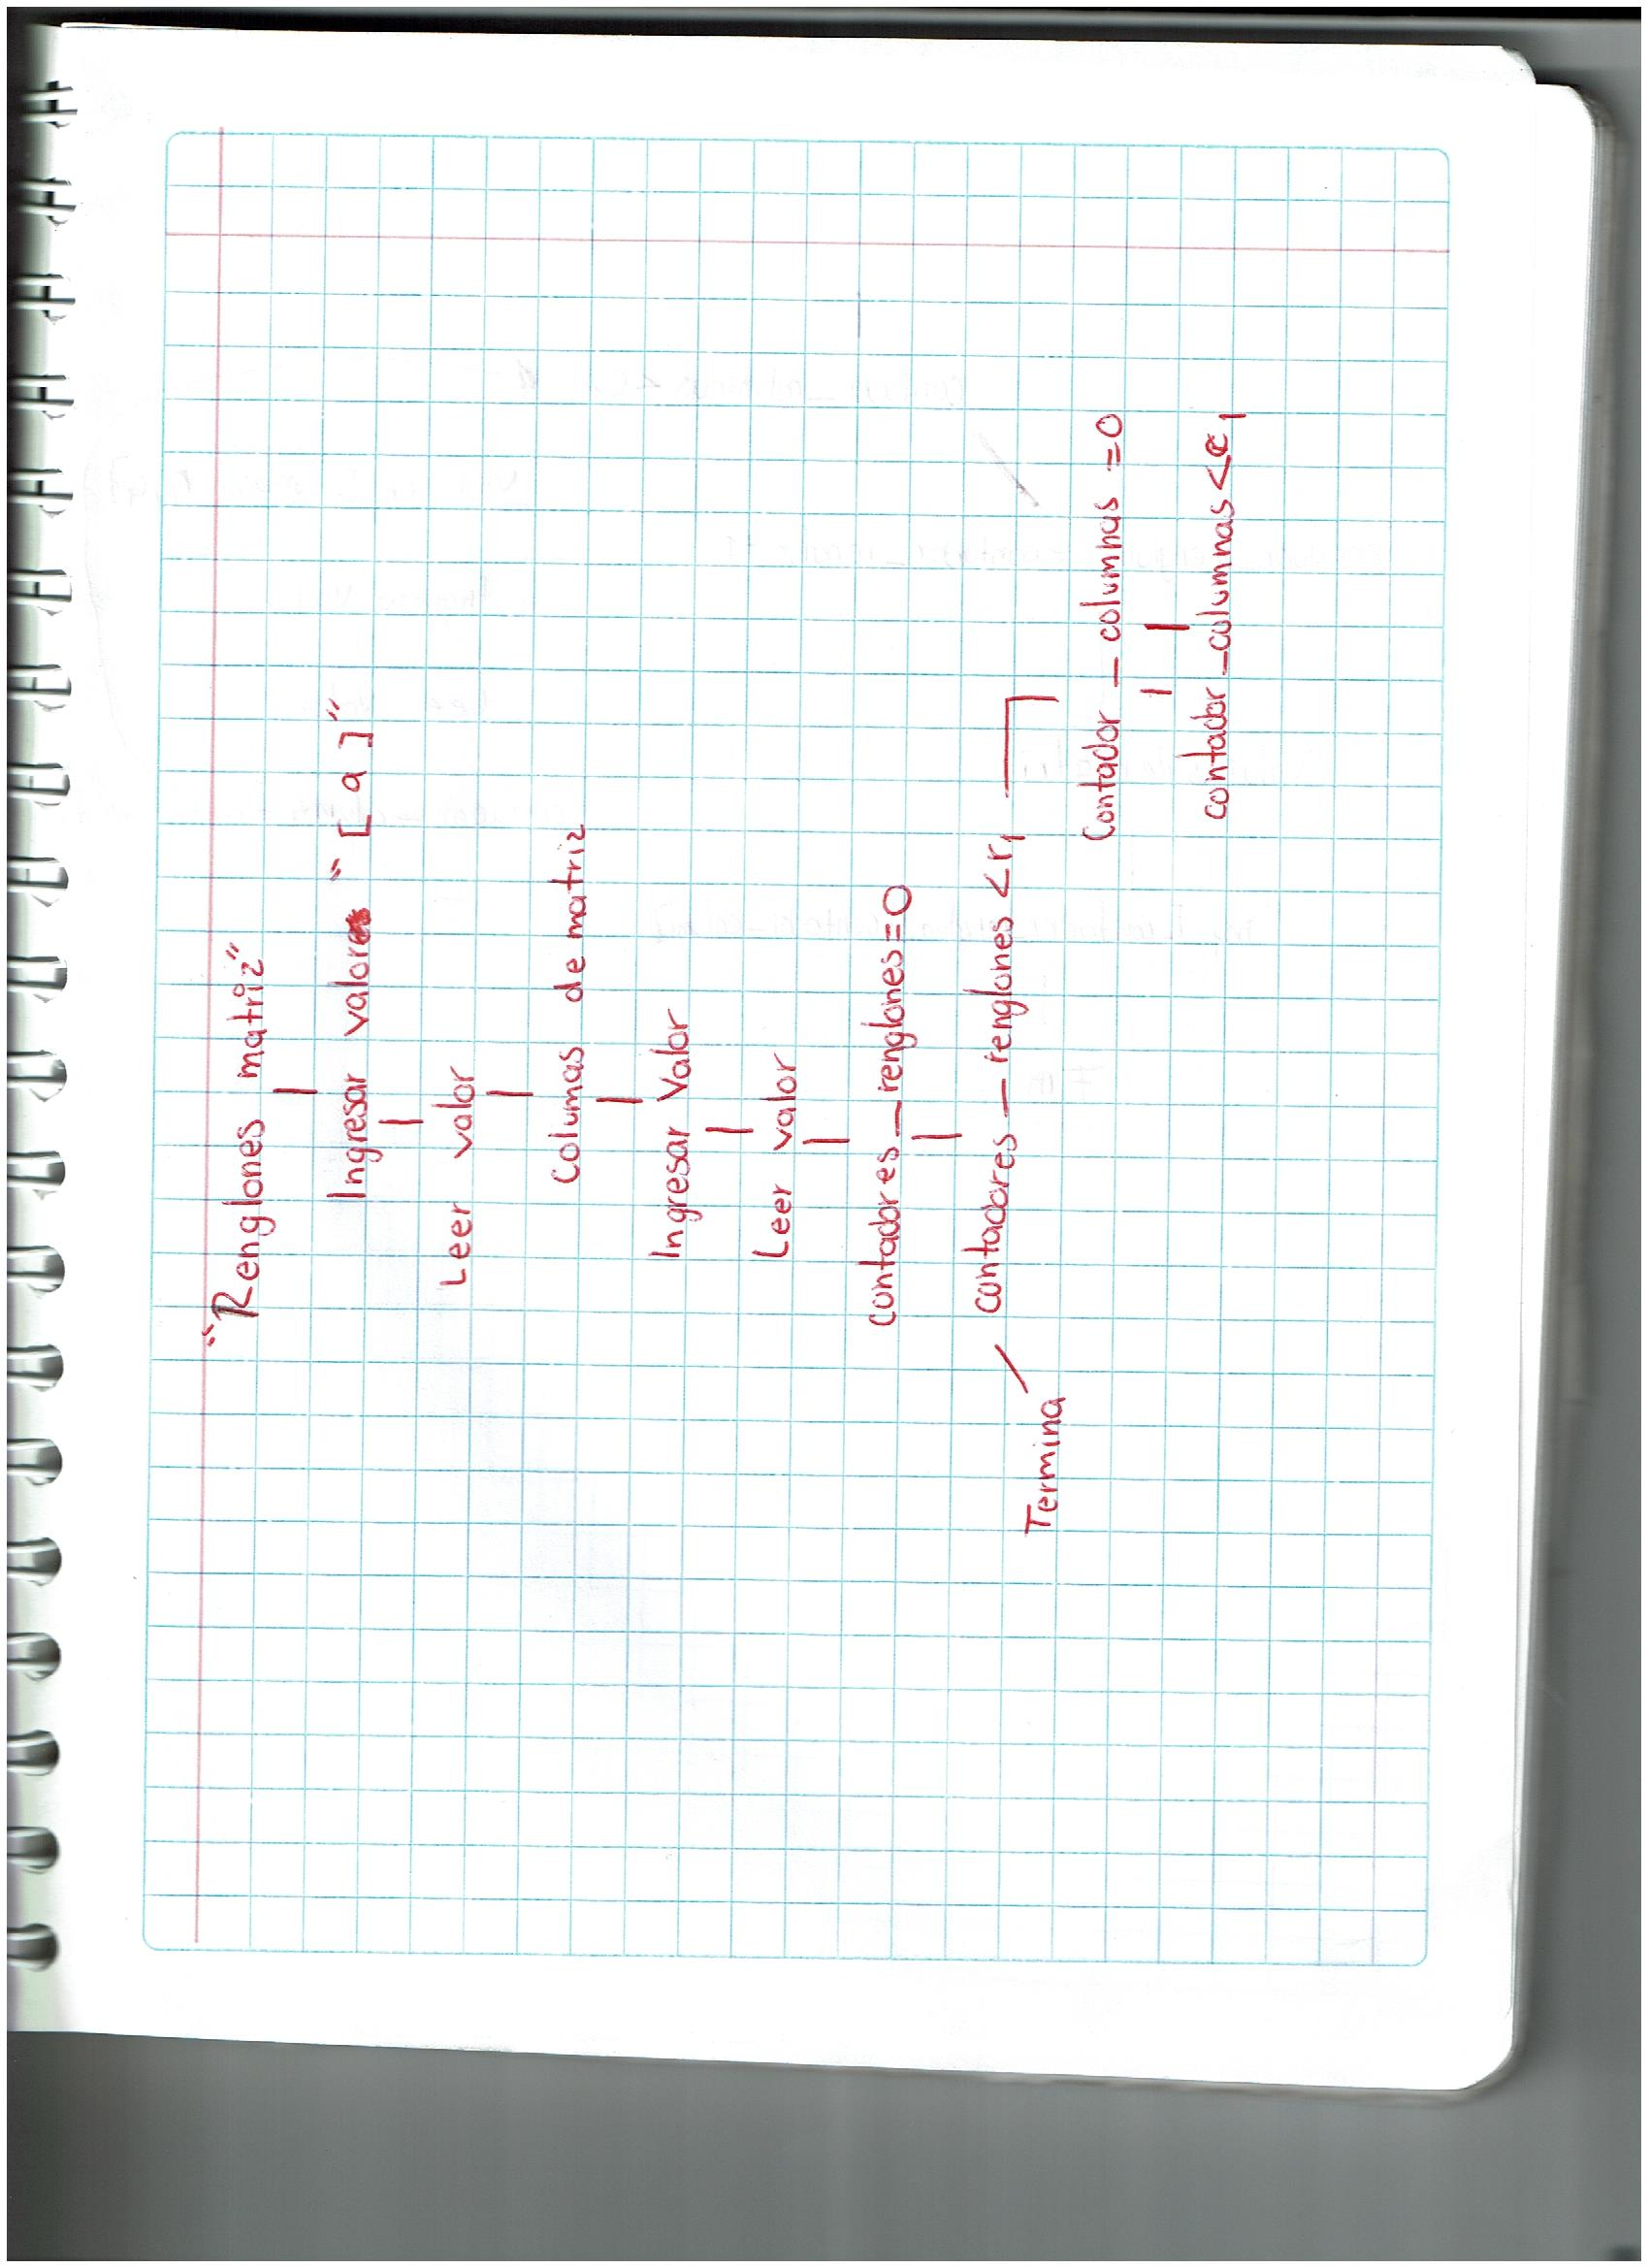 "Renglones matriz"
Ingresar valor " [ a ] "
Leer valor
Columas de matriz
Ingresar Valor
Leer valor
contadores_renglones=0
contadores_renglones<r1
Termina
Contador_columnas=0
contador_columnas<c1